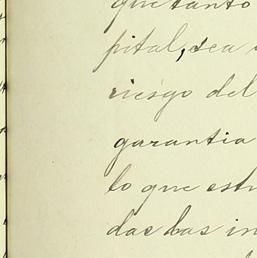 que tanto
pital, sea
riesgo del
garantia
lo que est
das bas in